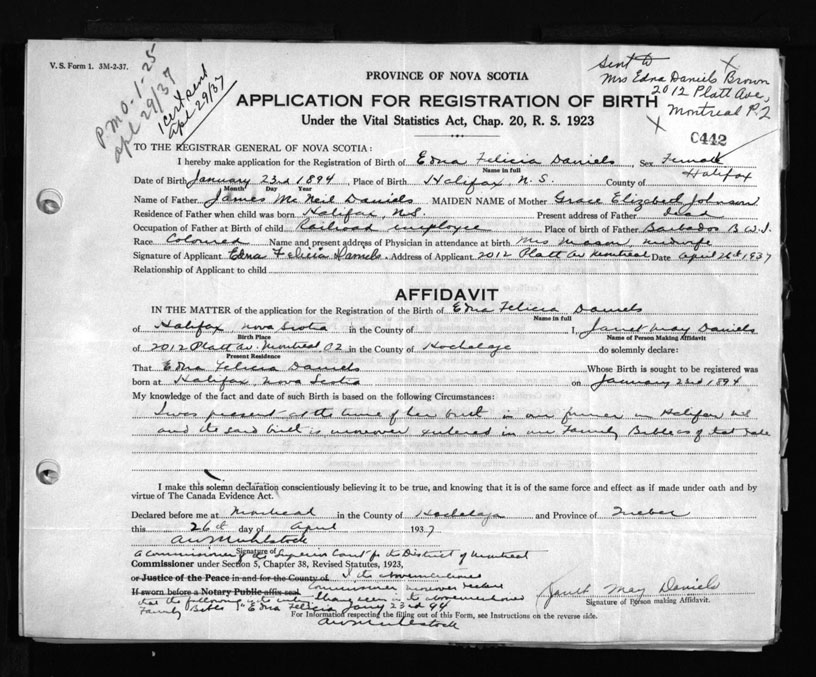 V. S. Form 1. 3M-2-37.
P.M.O. 1.25
apl 29/37
1 cert sent
apl 29/37
Sent to
Mrs Edna Daniels Brown
2012 Platt Ave,
Montreal P.Q
C442
PROVINCE OF NOVA SCOTIA
APPLICATION FOR REGISTRATION OF BIRTH
Under the Vital Statistics Act, Chap. 20, R. S. 1923
TO THE REGISTRAR GENERAL OF NOVA SCOTIA:
I hereby make application for the Registration of Birth of Edna Felicia Daniels, Sex Female
Name in full
Date of Birth January 23rd 1894, Place of Birth Halifax, N.S. County of Halifax
Month Day Year
Name of Father James Mc Neil Daniels MAIDEN NAME of Mother Grace Elizabeth Johnson
Residence of Father when child was born Halifax, N.S. Present address of Father dead
Occupation of Father at Birth of child Railroad employee Place of birth of Father Barbados B.W.I.
Race Coloured Name and present address of Physician in attendance at birth Mrs Mason, midwife
Signature of Applicant Edna Felicia Daniels. Address of Applicant 2012 Platt Av Montreal Date April 26th 1937
Relationship of Applicant to child
AFFIDAVIT
IN THE MATTER of the application for the Registration of the Birth of Edna Felicia Daniels
Name in full
of Halifax, Nova Scotia in the County of I, Janet May Daniels
Birth Place Name of Person Making Affidavit
of 2012 Platt Av. Montreal in the County of Hochelaga do solemnly declare:
Present Residence
That Edna Felicia Daniels Whose Birth is sought to be registered was
born at Halifax, Nova Scotia on January 23rd 1894
My knowledge of the fact and date of such Birth is based on the following Circumstances:
I was present at the time of her birth in our in Halifax
and the said birth is moreover entered in our Family Bible as of that date
I make this solemn declaration conscientiously believing it to be true, and knowing that it is of the same force and effect as if made under oath and by
virtue of The Canada Evidence Act.
Declared before me at Montreal in the County of Hochelaga and Province of Quebec
this 26th day of April 1937
Signature of
a Commissioner of the Superior Court for the District of Montreal
Commissioner under Section 5, Chapter 38, Revised Statutes, 1923,
or Justice of the Peace in and for the County of I the abovementioned
If sworn before a Notary Public affix seal. Commissioner moreover declare
that the following entry in the abovementioned
Family Bible "Edna Felicia Jany 23rd 94
Janet May Daniels
Signature of Person making Affidavit.
For Information respecting the filling out of this Form, see Instructions on the reverse side.